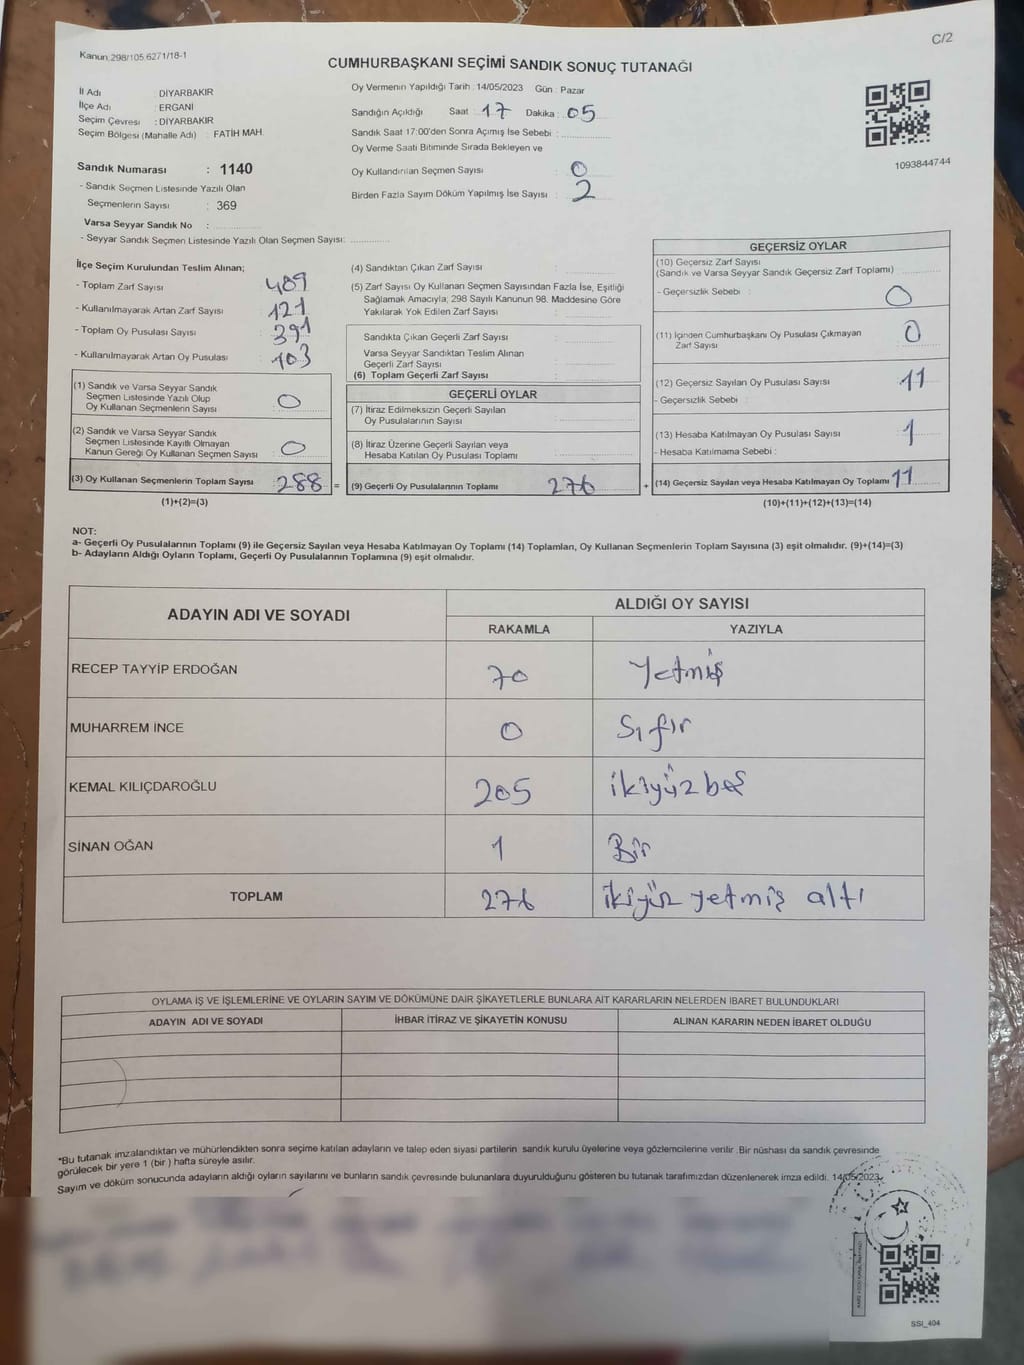 C/2
Kanun:298/105.6271/18-1
CUMHURBAŞKANI SEÇİMİ SANDIK SONUÇ TUTANAĞI
İl Adı : DİYARBAKIR
İlçe Adı : ERGANİ
Seçim Çevresi : DİYARBAKIR
Seçim Bölgesi (Mahalle Adı) : FATİH MAH.
Sandık Numarası : 1140
- Sandık Seçmen Listesinde Yazılı Olan
Seçmenlerin Sayısı : 369
Varsa Seyyar Sandık No :
- Seyyar Sandık Seçmen Listesinde Yazılı Olan Seçmen Sayısı:
Oy Vermenin Yapıldığı Tarih : 14/05/2023 Gün : Pazar
Sandığın Açıldığı Saat : 17 Dakika : 05
Sandık Saat 17:00'den Sonra Açımış İse Sebebi :
Oy Verme Saati Bitiminde Sırada Bekleyen ve
Oy Kullandırılan Seçmen Sayısı : 0
Birden Fazla Sayım Döküm Yapılmış İse Sayısı : 2
1093844744
İlçe Seçim Kurulundan Teslim Alınan;
- Toplam Zarf Sayısı : 409
- Kullanılmayarak Artan Zarf Sayısı : 121
- Toplam Oy Pusulası Sayısı : 391
- Kullanılmayarak Artan Oy Pusulası : 103
(1) Sandık ve Varsa Seyyar Sandık
Seçmen Listesinde Yazılı Olup
Oy Kullanan Seçmenlerin Sayısı : 0
(2) Sandık ve Varsa Seyyar Sandık
Seçmen Listesinde Kayıtlı Olmayan
Kanun Gereği Oy Kullanan Seçmen Sayısı : 0
(3) Oy Kullanan Seçmenlerin Toplam Sayısı : 288 =
(1)+(2)=(3)
(4) Sandıktan Çıkan Zarf Sayısı :
(5) Zarf Sayısı Oy Kullanan Seçmen Sayısından Fazla İse, Eşitliği
Sağlamak Amacıyla, 298 Sayılı Kanunun 98. Maddesine Göre
Yakılarak Yok Edilen Zarf Sayısı :
Sandıkta Çıkan Geçerli Zarf Sayısı :
Varsa Seyyar Sandıktan Teslim Alınan
Geçerli Zarf Sayısı :
(6) Toplam Geçerli Zarf Sayısı :
GEÇERLİ OYLAR
(7) İtiraz Edilmeksizin Geçerli Sayılan
Oy Pusulalarının Sayısı :
(8) İtiraz Üzerine Geçerli Sayılan veya
Hesaba Katılan Oy Pusulası Toplamı :
(9) Geçerli Oy Pusulalarının Toplamı : 276 +
GEÇERSİZ OYLAR
(10) Geçersiz Zarf Sayısı
(Sandık ve Varsa Seyyar Sandık Geçersiz Zarf Toplamı)
- Geçersizlik Sebebi : 0
(11) İçinden Cumhurbaşkanı Oy Pusulası Çıkmayan
Zarf Sayısı : 0
(12) Geçersiz Sayılan Oy Pusulası Sayısı : 11
- Geçersizlik Sebebi :
(13) Hesaba Katılmayan Oy Pusulası Sayısı : 1
- Hesaba Katılmama Sebebi :
(14) Geçersiz Sayılan veya Hesaba Katılmayan Oy Toplamı : 11
(10)+(11)+(12)+(13)=(14)
NOT:
a- Geçerli Oy Pusulalarının Toplamı (9) ile Geçersiz Sayılan veya Hesaba Katılmayan Oy Toplamı (14) Toplamları, Oy Kullanan Seçmenlerin Toplam Sayısına (3) eşit olmalıdır. (9)+(14)=(3)
b- Adayların Aldığı Oyların Toplamı, Geçerli Oy Pusulalarının Toplamına (9) eşit olmalıdır.
ADAYIN ADI VE SOYADI ALDIĞI OY SAYISI
RAKAMLA YAZIYLA
RECEP TAYYİP ERDOĞAN 70 Yetmiş
MUHARREM İNCE 0 Sıfır
KEMAL KILIÇDAROĞLU 205 ikiyüzbeş
SİNAN OĞAN 1 Bir
TOPLAM 276 ikiyüz yetmiş altı
OYLAMA İŞ VE İŞLEMLERİNE VE OYLARIN SAYIM VE DÖKÜMÜNE DAİR ŞİKAYETLERLE BUNLARA AİT KARARLARIN NELERDEN İBARET BULUNDUKLARI
ADAYIN ADI VE SOYADI İHBAR İTİRAZ VE ŞİKAYETİN KONUSU ALINAN KARARIN NEDEN İBARET OLDUĞU
*Bu tutanak imzalandıktan ve mühürlendikten sonra seçime katılan adayların ve talep eden siyasi partilerin sandık kurulu üyelerine veya gözlemcilerine verilir. Bir nüshası da sandık çevresinde
görülecek bir yere 1 (bir) hafta süreyle asılır.
Sayım ve döküm sonucunda adayların aldığı oyların sayılarını ve bunların sandık çevresinde bulunanlara duyurulduğunu gösteren bu tutanak tarafımızdan düzenlenerek imza edildi. 14/05/2023
SSI_404